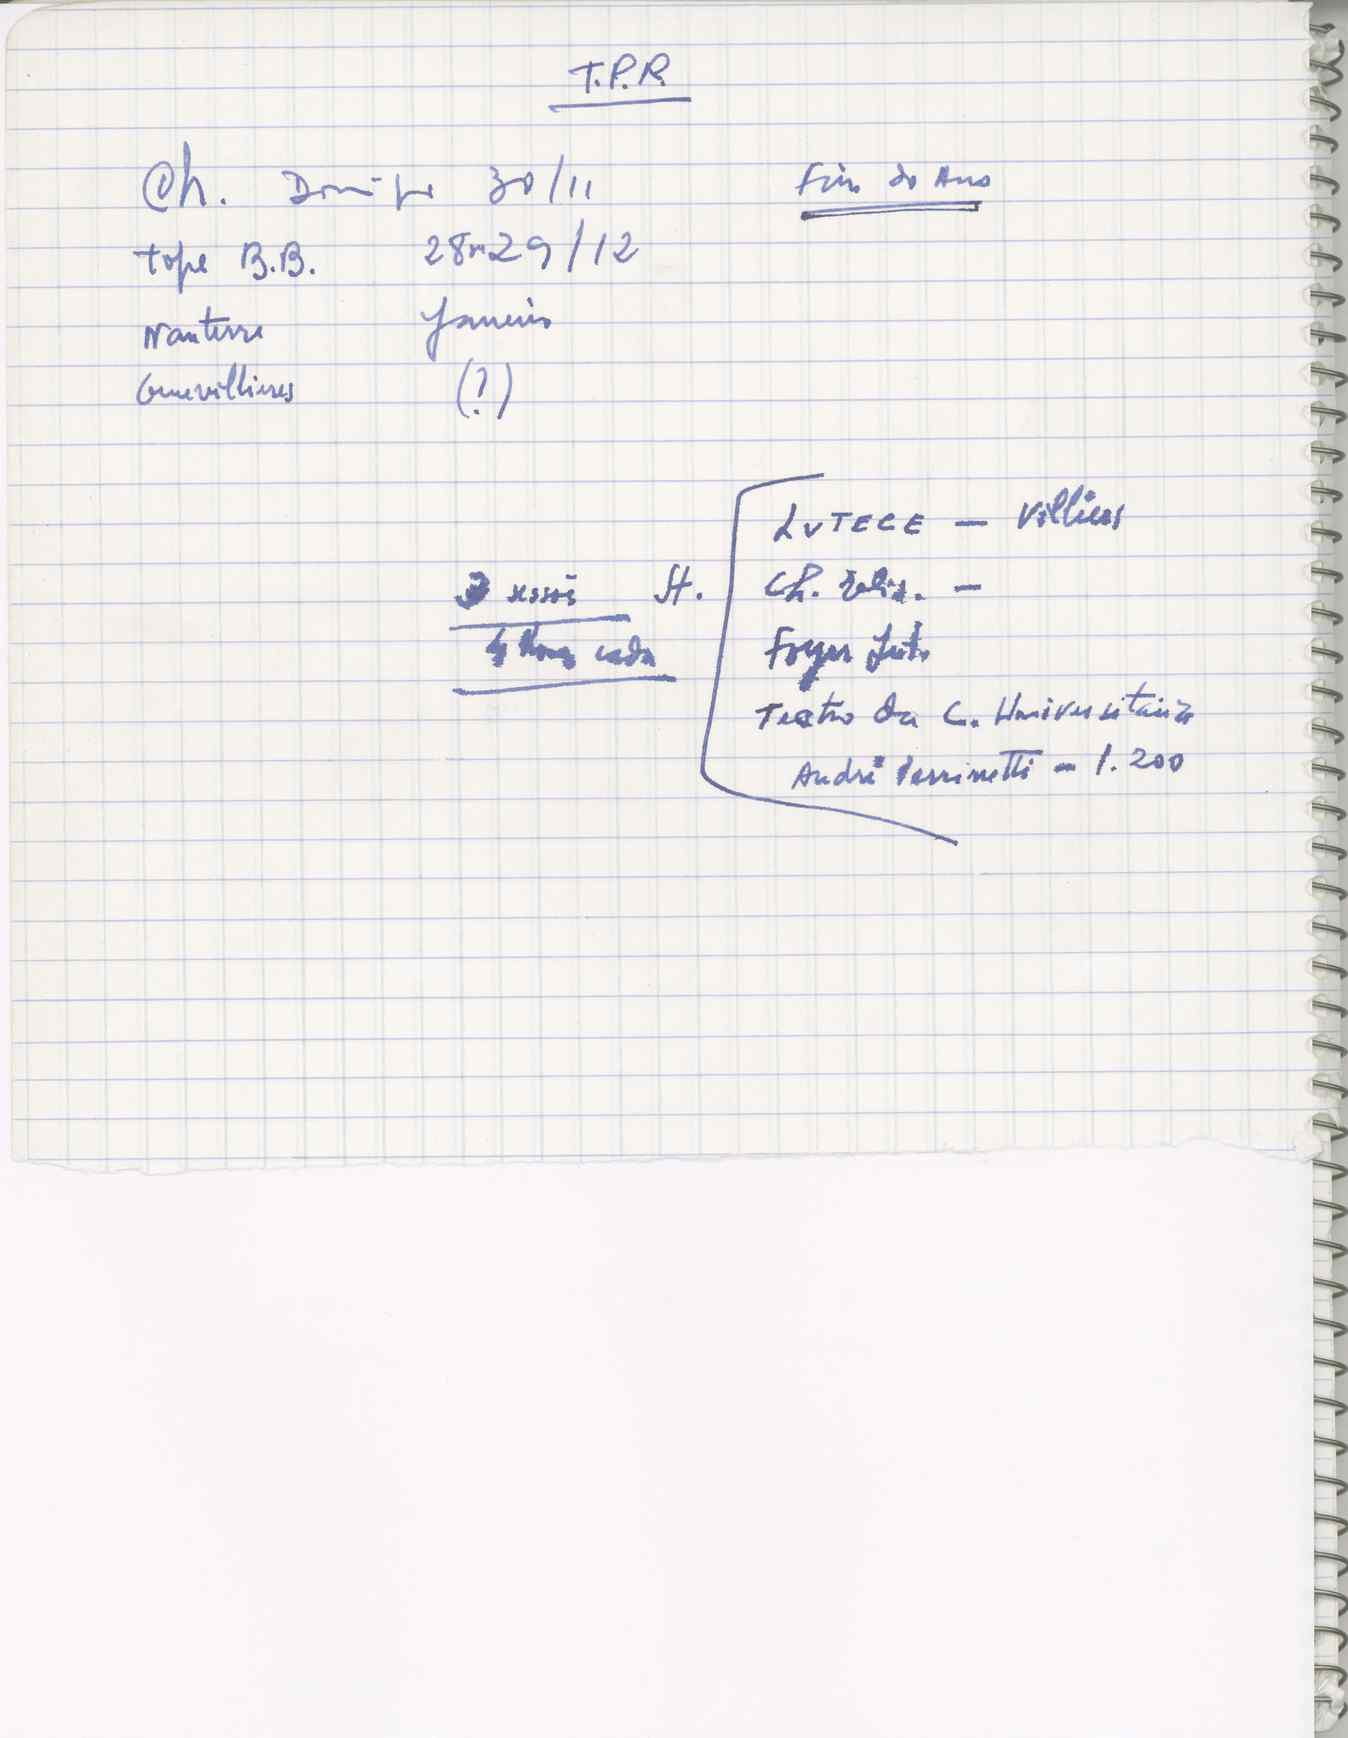 T.P.R.
Ch. Domingo 30/11
Fim do Ano
tope B.B. 28 29/12
Nanterre Janeiro
Genevilliers (?)
LUTECE — Villiers
3 sessões H. Ch. —
4 horas cada Foyer
Teatro da C. Universitária
André - 1.200